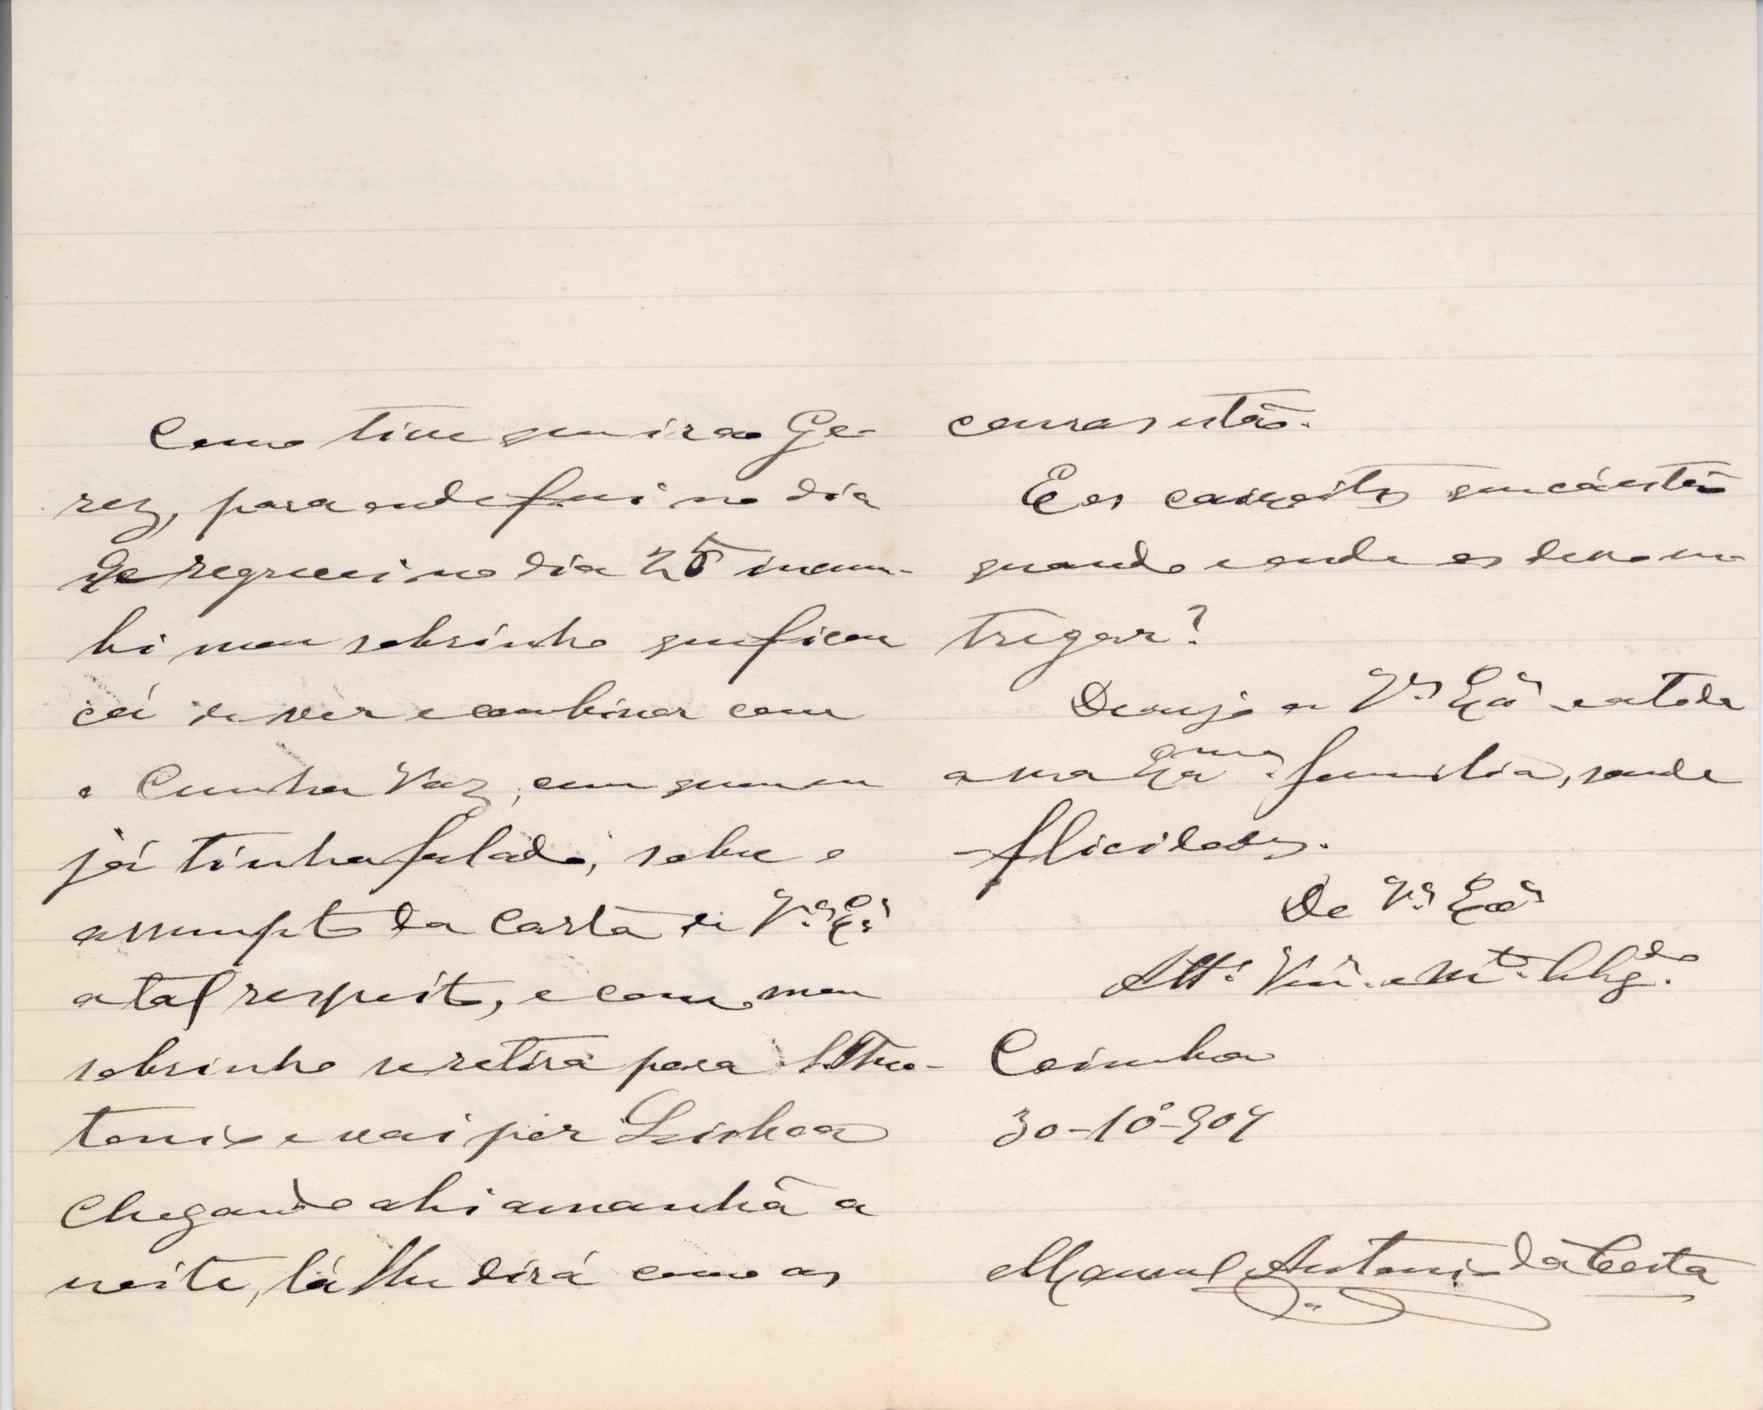 Como tive que ir ao Ge-
rez, para onde fui no dia
e regrecei no dia 25 incum-
bi meu sobrinho que ficou
cá de ver e combinar com
o Cunha Vaz, com quem eu
já tinha falado, sobre o
assumpto da carta de V.ª Ex.ª
a tal respeito, e como meu
sobrinho se retira para
e vai por Lisboa
chegando ahi amanhã a
noite, lá lhe dirá como as
cousas estão.
E os caixotes que cá estão
quando e onde os devo en
tregar?
Desejo a V.ª Ex.ª e a toda
a sua Ex.ma familia, saude
e flicidades.
De V.ª Ex.ª
Att.º Ven.or e M.to Obg.do
Coimbra
30-10-904
Manuel Antonio da Costa